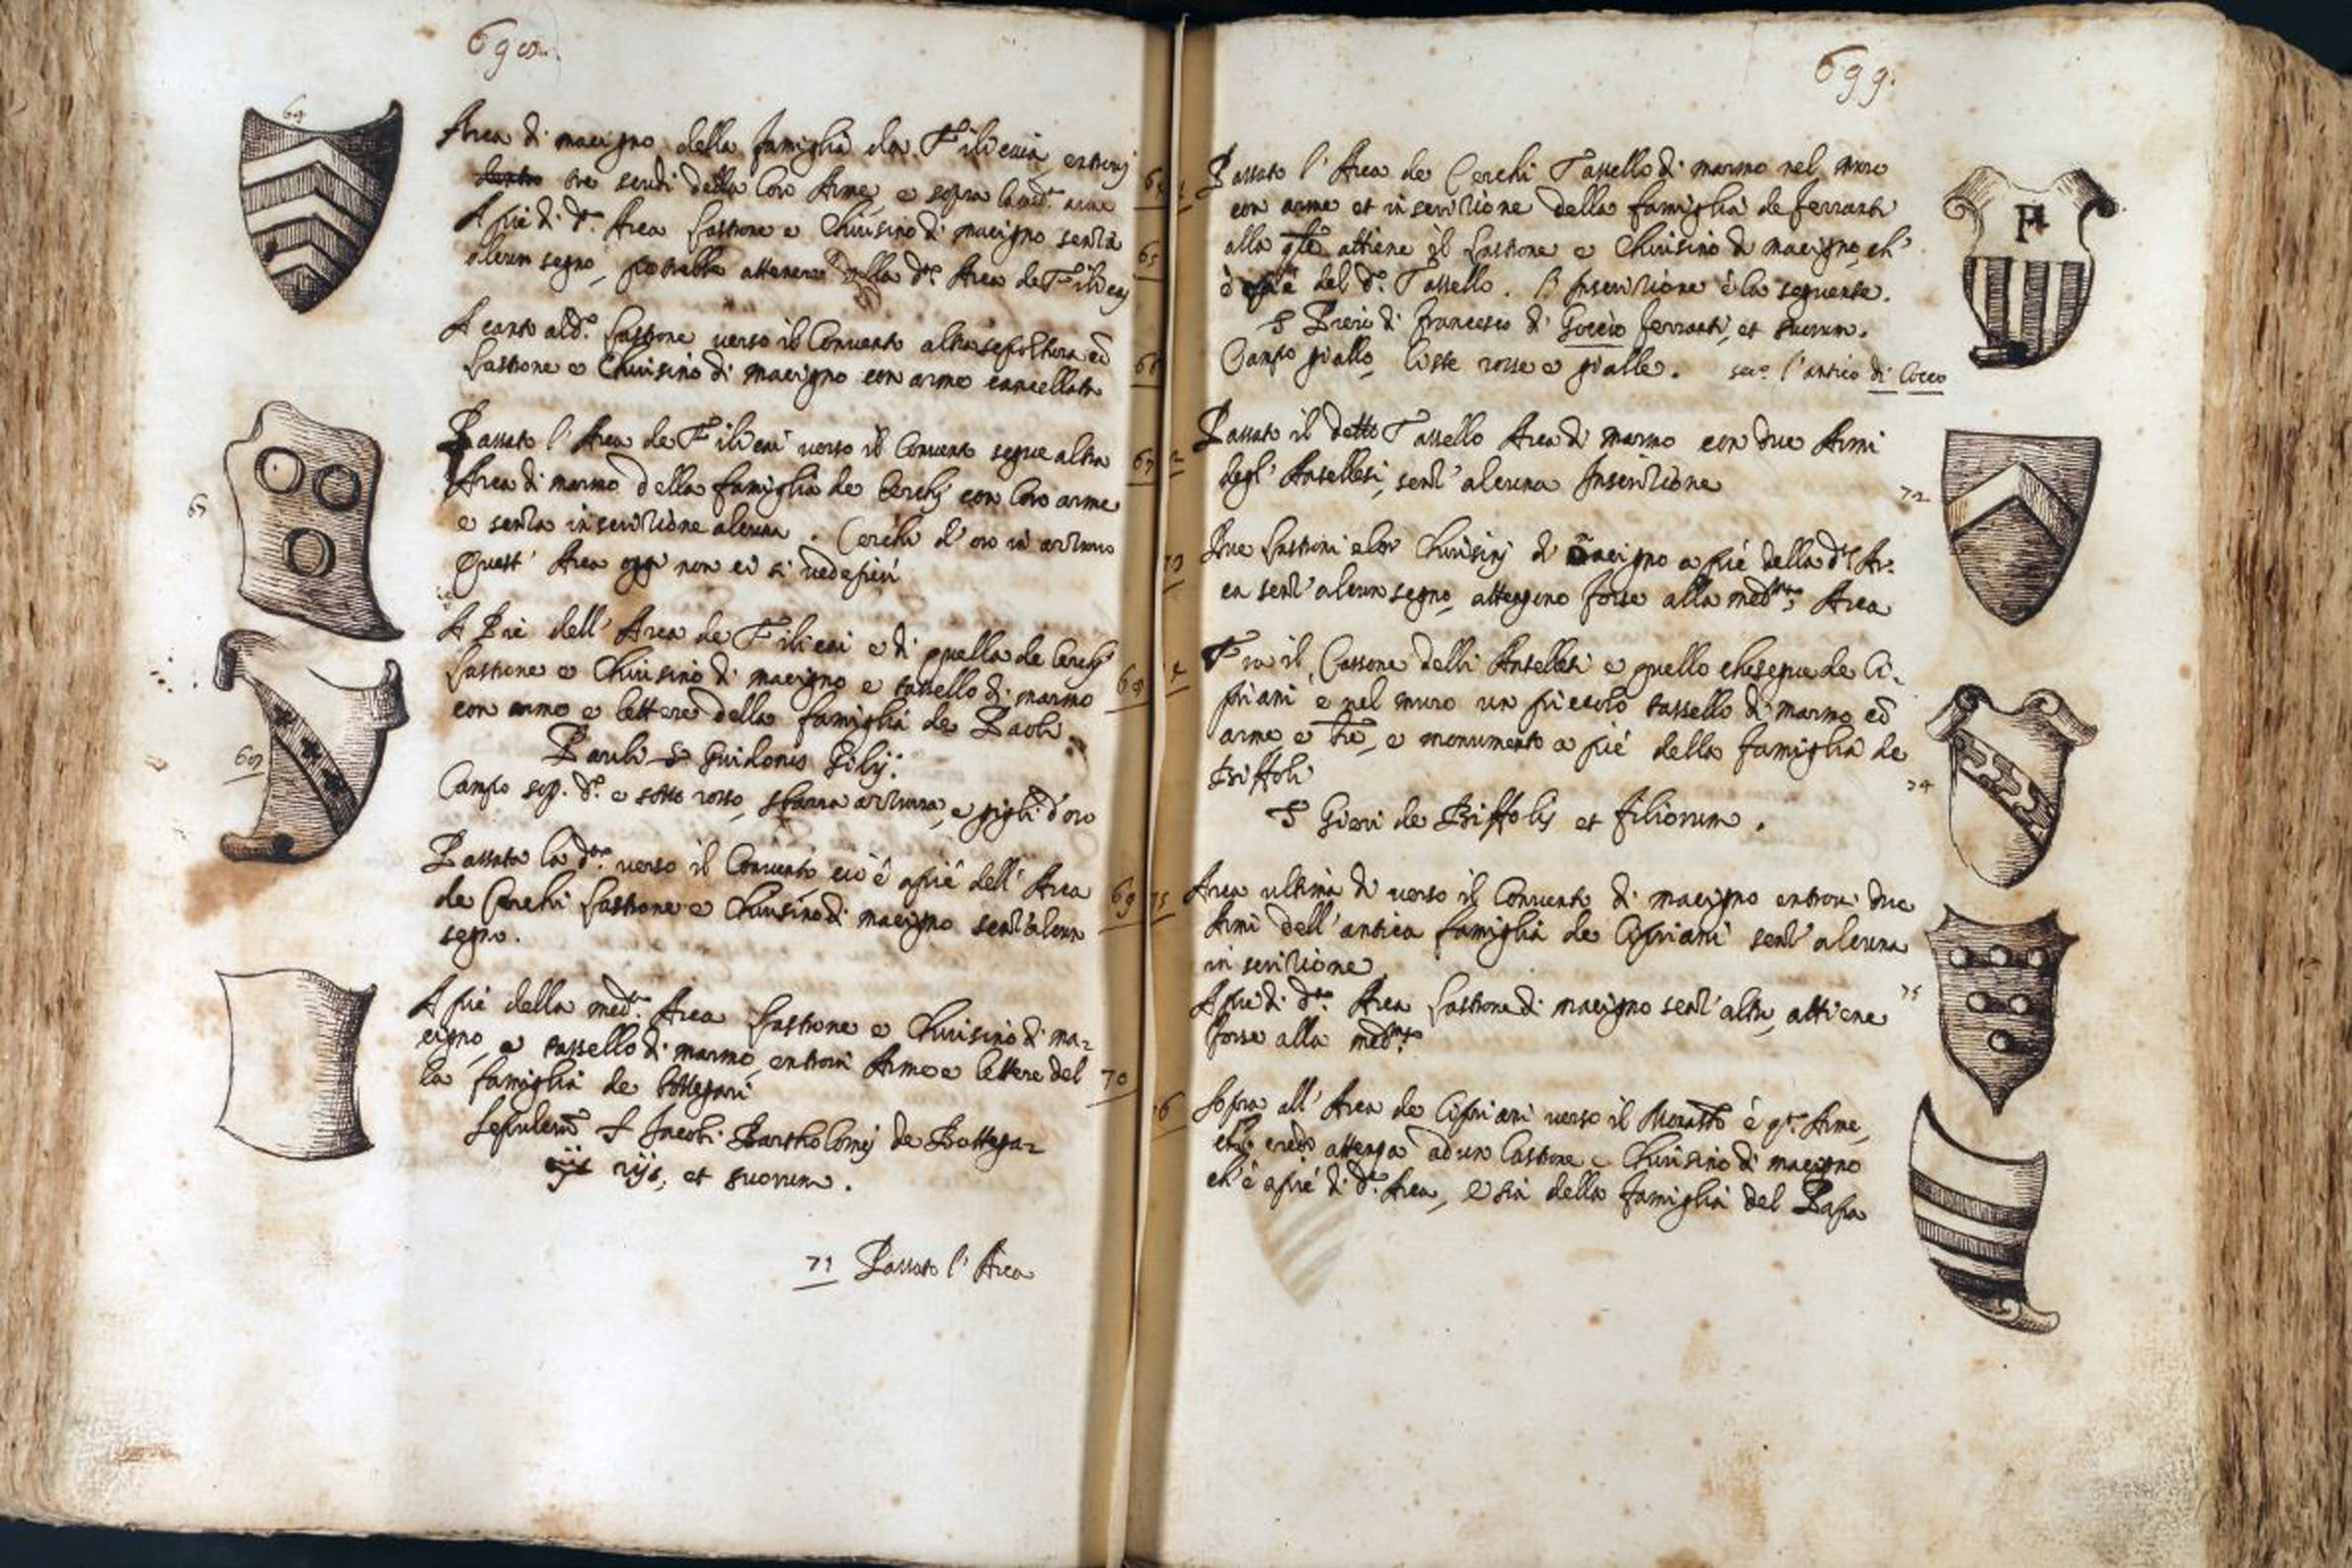 698.
64
Arca di macigno della famiglia da Filicaia, entrovj
tre scudi della loro Arme, e sopra la med.ª arme
A piè di d.ª Arca Lastrone e Chiusino di macigno senza
alcun segno, potrebbe attenere alla d.ª Arca de Filicaj
65
A canto al d.º Lastrone verso il Convento altra sepoltura cō
Lastrone e Chiusino di macigno con arme cancellata
66
Passato l'Arca de Filicai verso il Convento segue altra
Arca di marmo della famiglia de Cerchj con loro arme
e senza inscrizione alcuna. Cerchi d'oro in azzurro
Quest'Arca oggi non ci si vede più
67
67
A Piè dell'Arca de Filicai e di quella de Cerchj
Lastrone e Chiusino di macigno e tassello di marmo
con arme e lettere della famiglia de Paoli.
68
Pauli S. Guidonis Gilij:
Campo sop. d.º e sotto rosso, sbarra azzurra, e gigli d'oro
68
Passata la d.ª verso il Convento cioè a piè dell'Arca
de Cerchi Lastrone e Chiusino di macigno senz'alcun
segno.
69
A piè della med.ª Arca Lastrone e Chiusino di ma-
cigno, e tassello di marmo, entrovi Arme e lettere del
la famiglia de Bottegari
70
Sepulcrū S. Jacobi Bartholomej de Bottega-
rijs, et suorum.
71 Passato l'Arca
699.
Passato l'Arca de Cerchi Tassello di marmo nel muro
con arme et inscrizione della famiglia de Ferranti
alla qle attiene il Lastrone e Chiusino di macigno ch'
è a piè del d.º Tassello. L'Inscrizione è la seguente.
S. Pieri di Francesco di Goccio Ferranti, et suorum.
Campo giallo, liste rosse e gialle. sec.º l'antico di Cocco
F
Passato il detto Tassello Arca di marmo con due Armi
degl'Antellesi, senz'alcuna Inscrizione
72
Due Lastroni e lor Chiusinj di macigno a piè della d.ª Ar-
ca senz'alcun segno, attengono forse alla med.ma Arca
73
Fra il Cassone delli Antellesi e quello che segue de Ci-
priani è nel muro un piccolo tassello di marmo cō
arme e lrē, e monumento a piè della famiglia de
Biffoli
74
S. Gieri de Biffolis et filiorum.
Arca ultima di verso il Convento di macigno entrovi due
75
Armi dell'antica famiglia de Cipriani senz'alcuna
inscrizione
A piè di d.ª Arca Lastrone di macigno senz'altro, attiene
75
forse alla med.ma
Sopra all'Arca de Cipriani verso il è q.ª Arme,
76
che credo attenga ad un Lastrone e Chiusino di macigno
ch'è a piè di d.ª Arca, e sia della famiglia del Papa